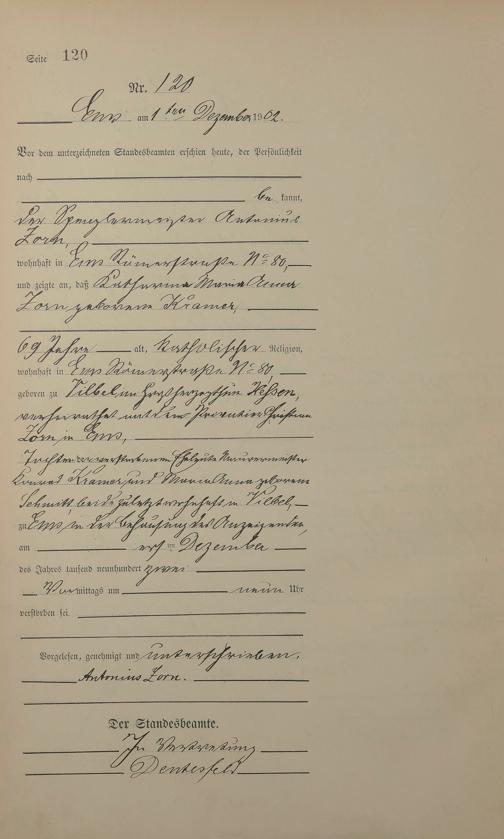 Seite 120
Nr. 120
Ems am 1ten Dezember 1902.
Vor dem unterzeichneten Standesbeamten erschien heute, der Persönlichkeit
nach
be kannt,
der Spenglermeister Antonius
Zorn,
wohnhaft in Ems Römerstraße No 80,
und zeigte an, daß Katharina Maria Anna
Zorn geborene Kramer,
69 Jahre alt, katholischer Religion,
wohnhaft in Ems Römerstraße No 80,
geboren zu Vilbel im Großherzogthum Hessen,
verheirathet mit dem Christian
Zorn in Ems,
Tochter der verstorbenen Eheleute Maurermeister
Konrad Kramer und Maria Anna geborene
Schmitt beide zuletzt wohnhaft in Vilbel,
zu Ems in der Behausung des Anzeigenden,
am ersten Dezember
des Jahres tausend neunhundert zwei
Vormittags um neun Uhr
verstorben sei.
Vorgelesen, genehmigt und unterschrieben.
Antonius Zorn.
Der Standesbeamte.
In Vertretung